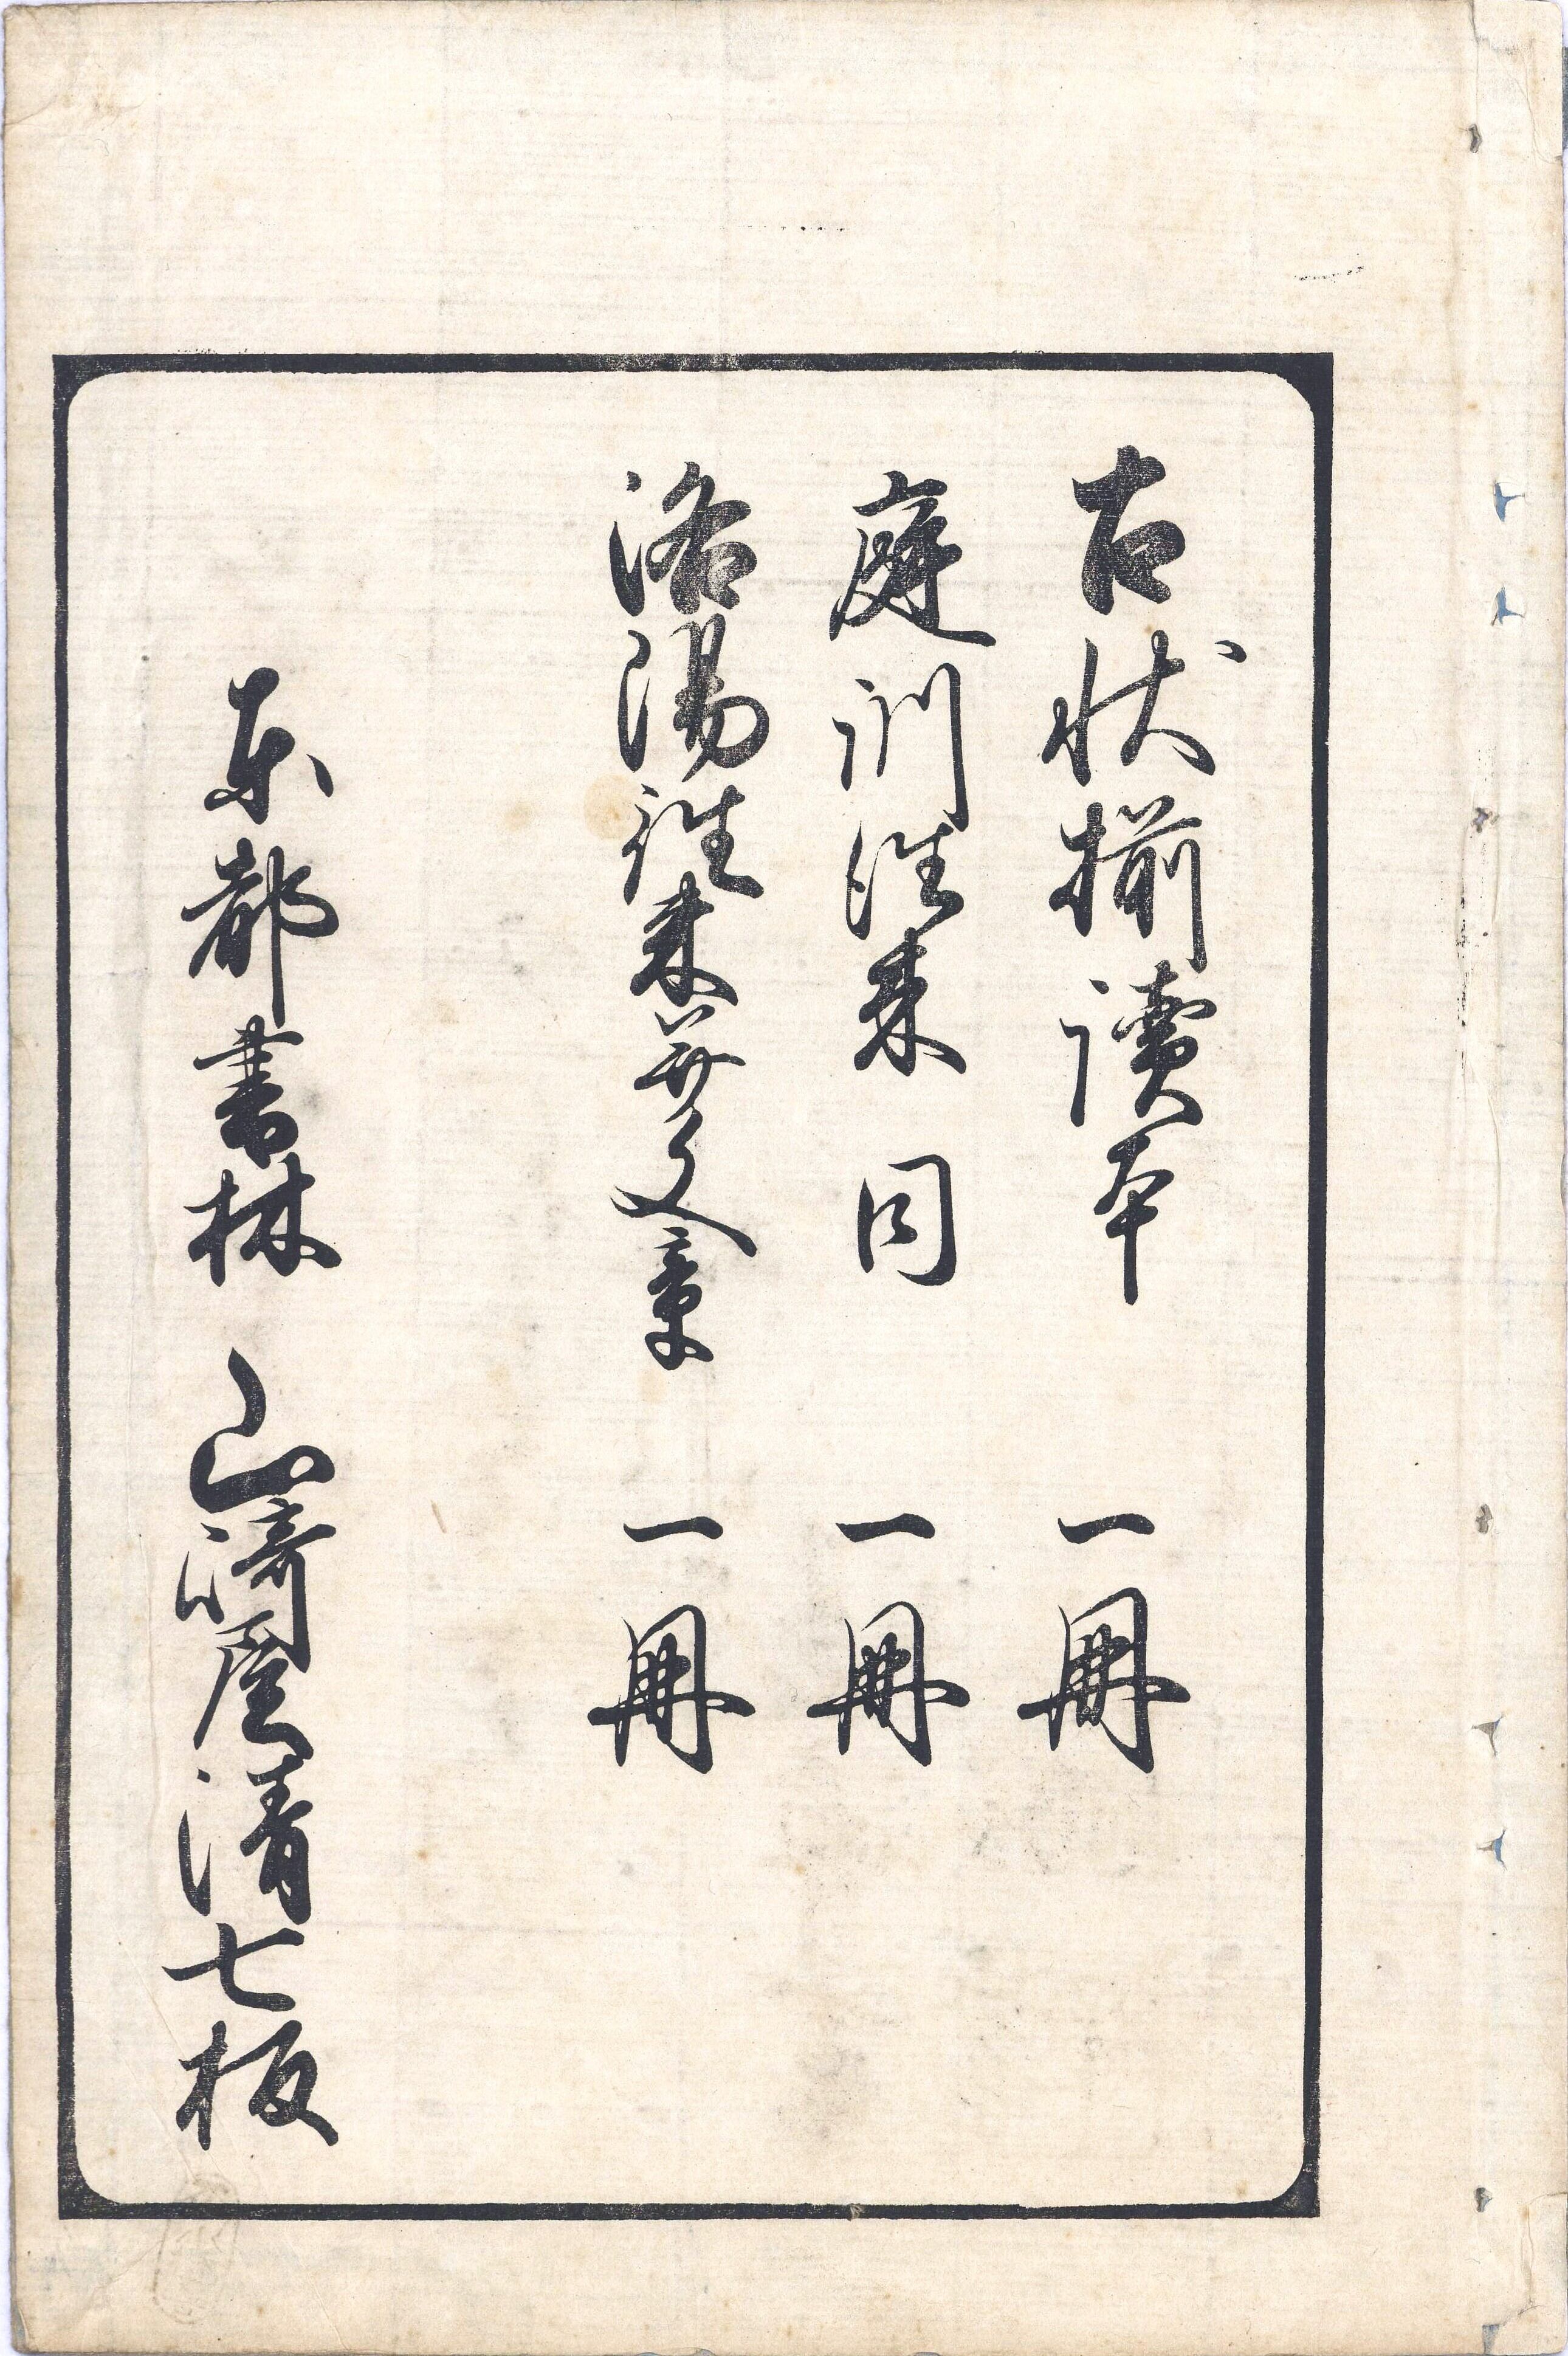 古状揃讀本 一冊
庭訓徃来 同 一冊
洛陽徃来并文章 一冊
東都書林 山崎屋清七板